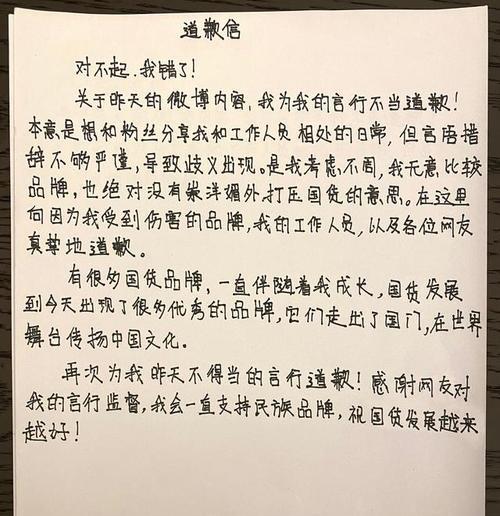 道歉信
对不起.我错了!
关于昨天的微博内容,我为我的言行不当道歉!
本意是想和粉丝分享我和工作人员相处的日常,但言语措
辞不够严谨,导致歧义出现。是我考虑不周,我无意比较
品牌,也绝对没有崇洋媚外打压国货的意思。在这里
向因为我受到伤害的品牌,我的工作人员,以及各位网友
真挚地道歉。
有很多国货品牌,一直伴随着我成长,国货发展
到今天出现了很多优秀的品牌,它们走出了国门,在世界
舞台传扬中国文化。
再次为我昨天不得当的言行道歉!感谢网友对
我的言行监督,我会一直支持民族品牌,祝国货发展越来
越好!